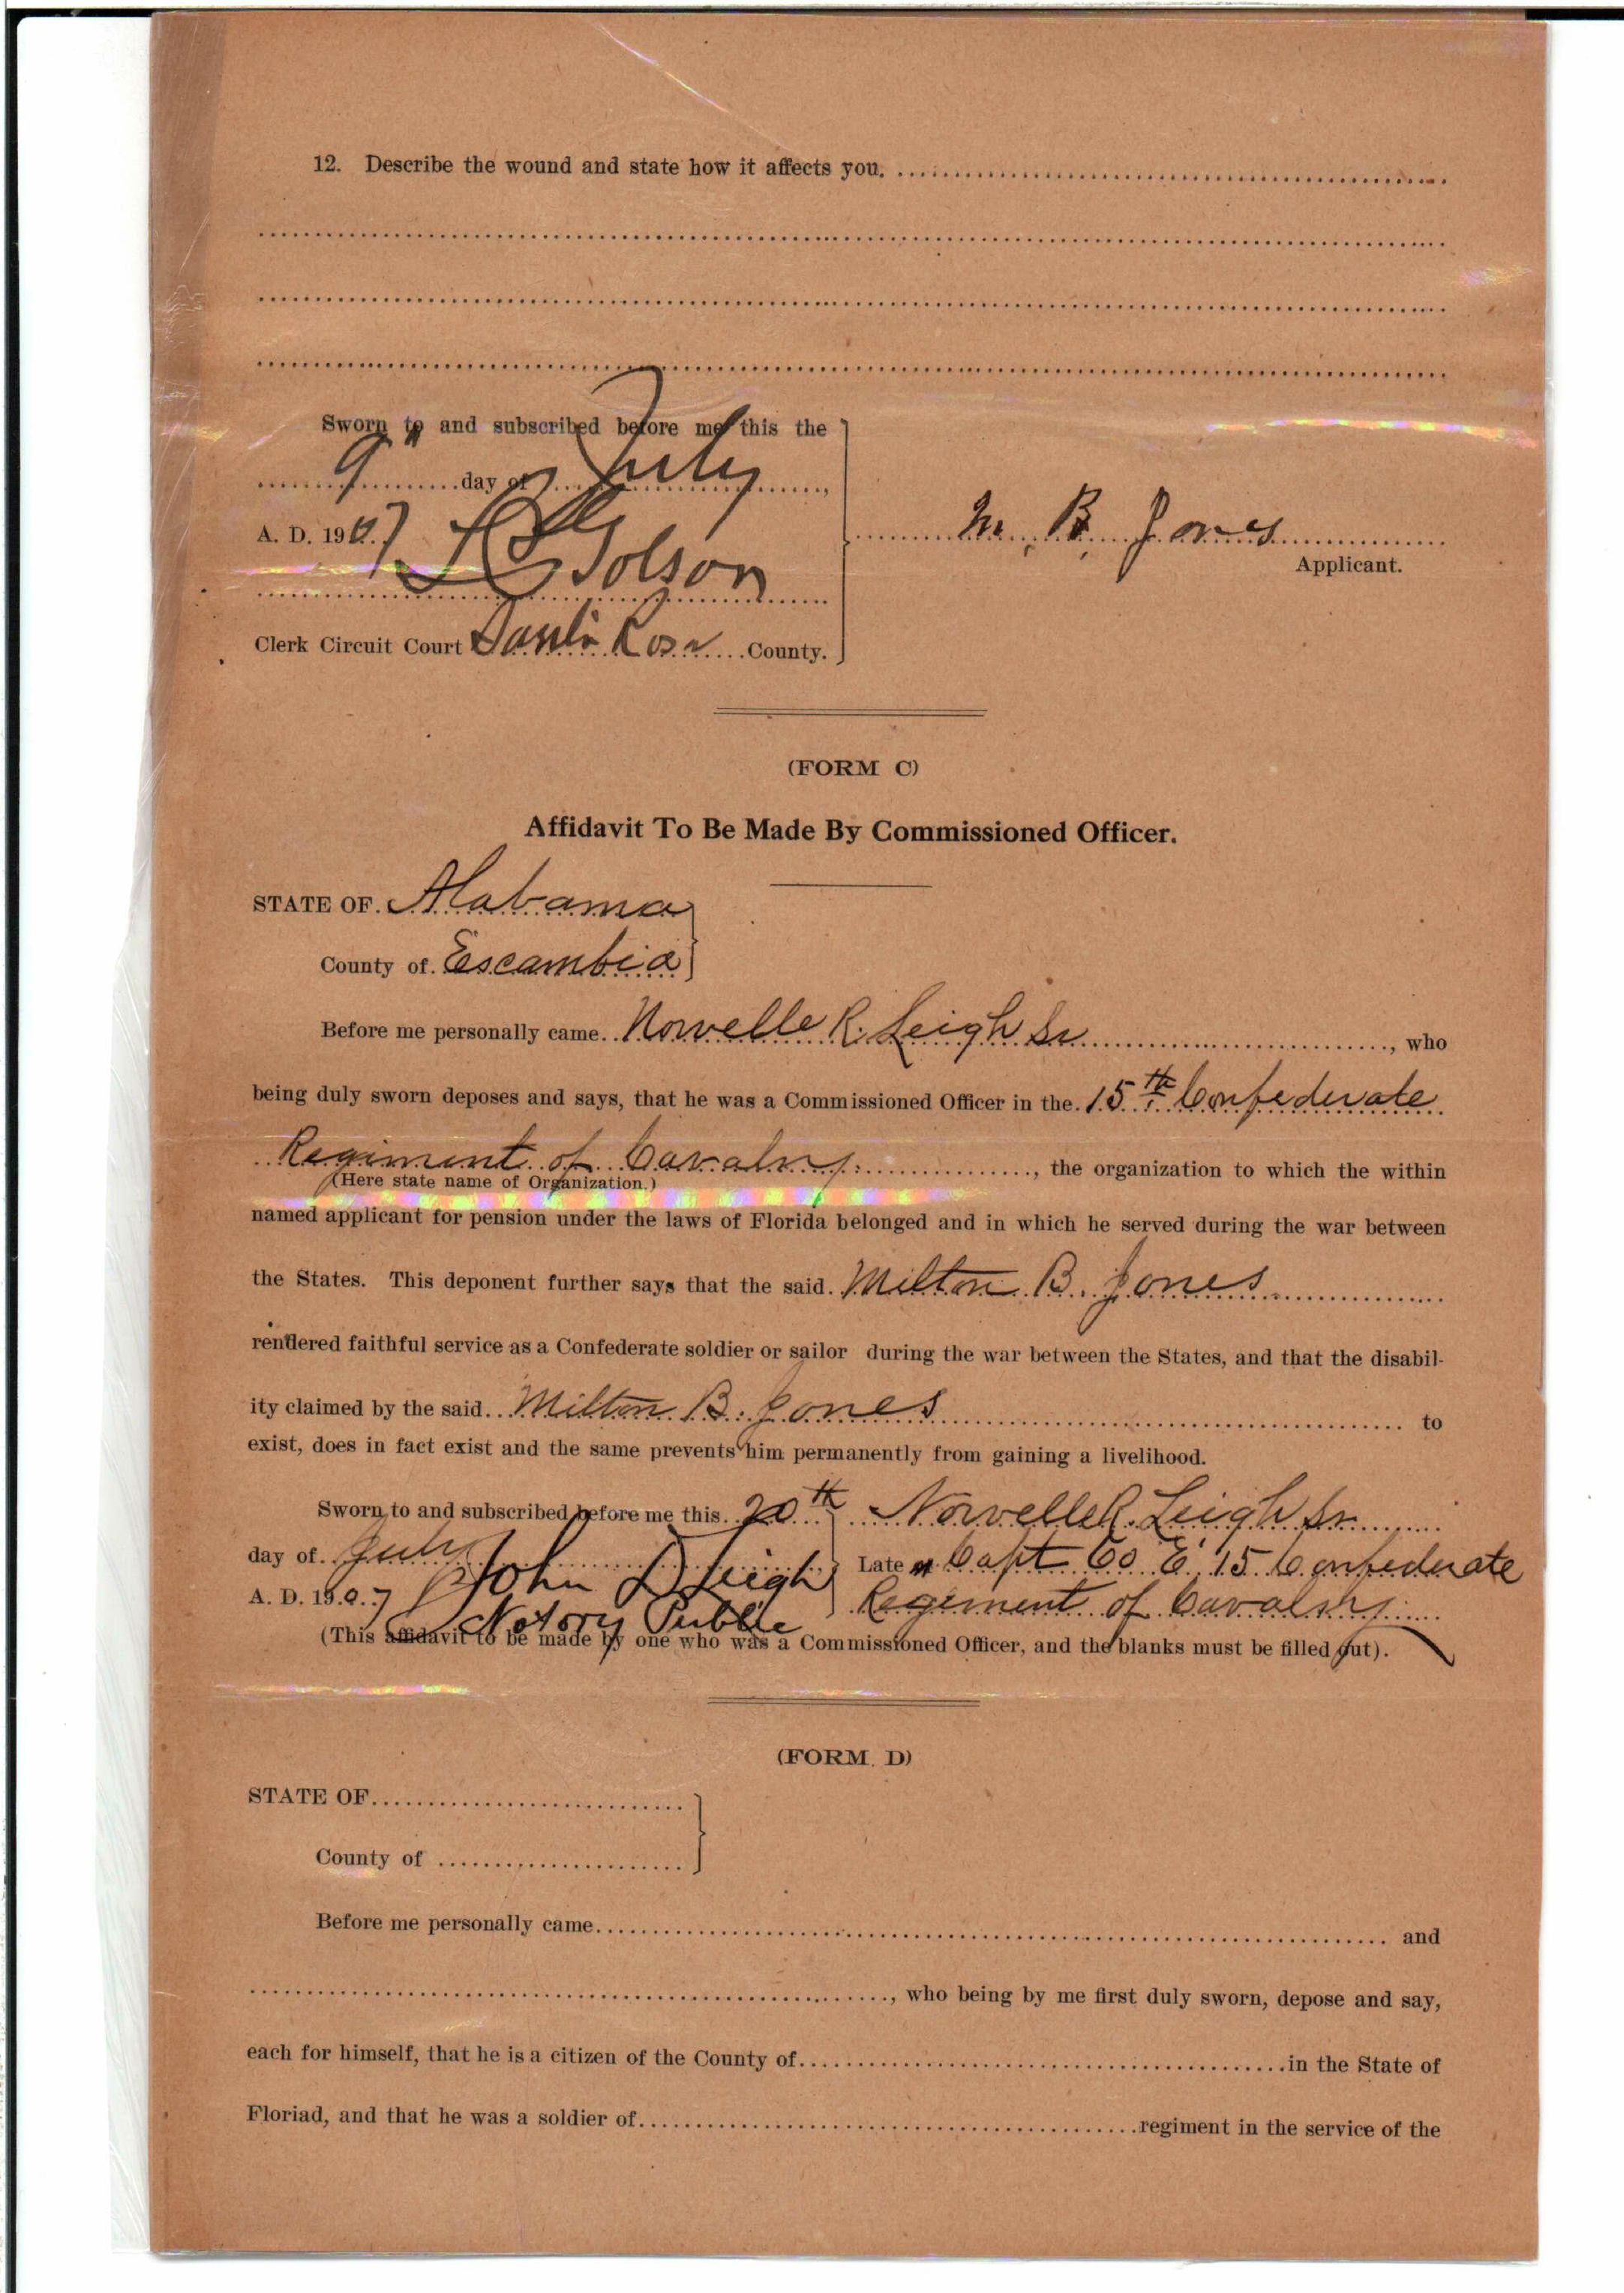 12. Describe the wound and state how it affects you.
Sworn to and subscribed before me this the
9" day of July,
A. D. 1907
Golson
Clerk Circuit Court Santa Rosa County.
M. B. Jones
Applicant.
(FORM C)
Affidavit To Be Made By Commissioned Officer.
STATE OF Alabama
County of Escambia
Before me personally came Norvelle R. Leigh Sr, who
being duly sworn deposes and says, that he was a Commissioned Officer in the 15th Confederate
Regiment of Cavalry, the organization to which the within
(Here state name of Organization.)
named applicant for pension under the laws of Florida belonged and in which he served during the war between
the States. This deponent further says that the said Milton B. Jones
rendered faithful service as a Confederate soldier or sailor during the war between the States, and that the disabil-
ity claimed by the said Milton B. Jones to
exist, does in fact exist and the same prevents him permanently from gaining a livelihood.
Sworn to and subscribed before me this 20th
day of July
A. D. 1907
John D Leigh
Notory Public
Norvelle R. Leigh Sr.
Late Capt Co E, 15 Confederate
Regiment of Cavalry
(This affidavit to be made by one who was a Commissioned Officer, and the blanks must be filled out).
(FORM. D)
STATE OF
County of
Before me personally came and
, who being by me first duly sworn, depose and say,
each for himself, that he is a citizen of the County of in the State of
Floriad, and that he was a soldier of regiment in the service of the